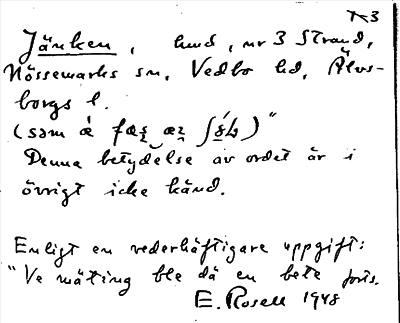 Jänken, hund, nr 3 Strand,
Nössemarks sn, Vedbo hd, Älvs-
borgs l.
(säm
Denna betydelse av ordet är i
övrigt icke känd.
Enligt en vederhäftigare uppgift:
"Ve mäting ble dä en bete forts.
E. Rosell 1948